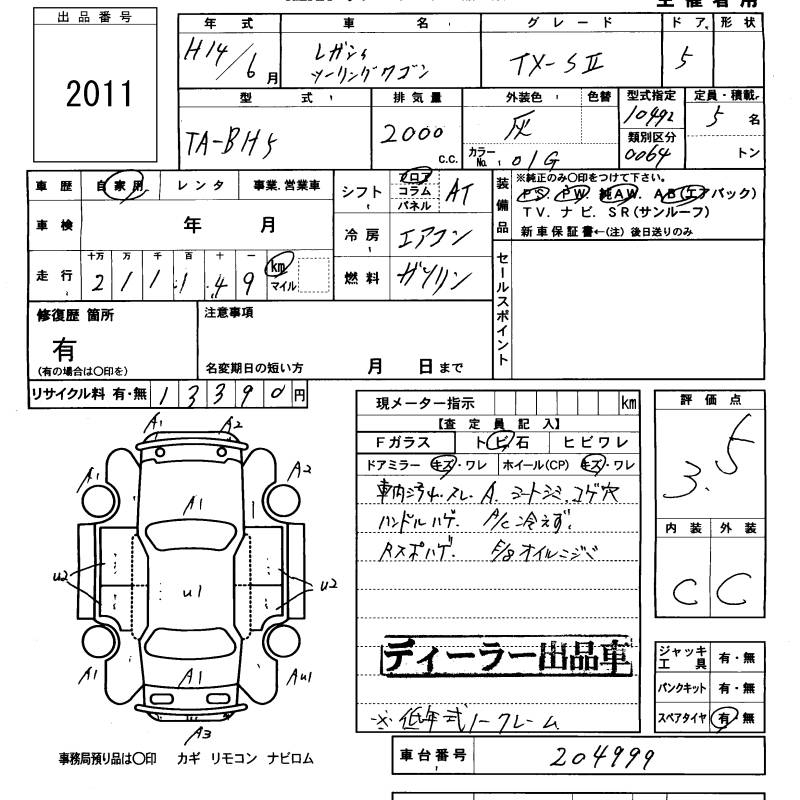 主催者用
出品番号
2011
年式 車名 グレード ドア 形状
H14/6月 レガシィ ツーリングワゴン TX-SⅡ 5
型式 排気量 外装色 色替 型式指定 定員・積載
TA-BH5 2000 C.C. 灰 10492 5名
カラーNo. 01G 類別区分 0064 トン
車歴 自家用 レンタ 事業.営業車
シフト フロア コラム パネル AT
装備品
※純正のみ〇印をつけて下さい。
PS. PW. 純AW. AB(エアバック)
TV. ナビ. SR(サンルーフ)
新車保証書←(注)後日送りのみ
車検 年 月
冷房 エアコン
走行 十万 万 千 百 十 一
211149 km マイル
燃料 ガソリン
セールスポイント
修復歴 箇所
有
(有の場合は〇印を)
注意事項
名変期日の短い方 月 日まで
リサイクル料 有・無 13390円
現メーター指示 km
【査定員記入】
Fガラス トビ石 ヒビワレ
ドアミラー キズ・ワレ ホイール(CP) キズ・ワレ
車内 スレ. A. シートシミ.コゲ穴
ハンドルハゲ. A/C冷えず.
Rスポハゲ. E/g オイルニジミ
ディーラー出品車
※低年式ノークレーム
評価点
3.5
内装 外装
C C
A1 A2
A1 A2
A1
U2 U1 U2
A1 A1 AU1
A3
ジャッキ工具 有・無
パンクキット 有・無
スペアタイヤ 有・無
事務局預り品は〇印 カギ リモコン ナビロム
車台番号 204999